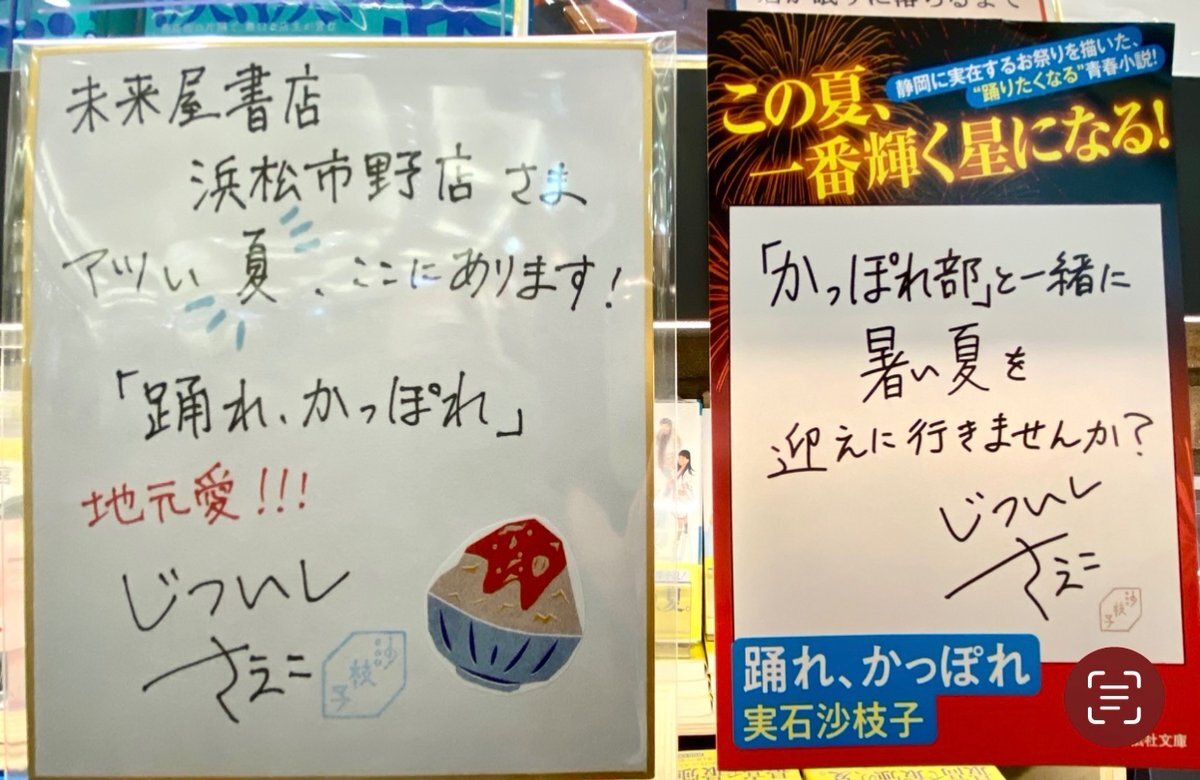 未来屋書店
浜松市野店 さま
アツい 夏、ここにあります!
「踊れ、かっぽれ」
地元愛!!!
じついし
さえこ
沙
枝
子
静岡に実在するお祭りを描いた、
“踊りたくなる”青春小説!
この夏、
一番輝く星になる!
「かっぽれ部」と一緒に
暑い夏を
迎えに行きませんか?
じついし
さえこ
沙
枝
子
踊れ、かっぽれ
実石沙枝子
社文庫